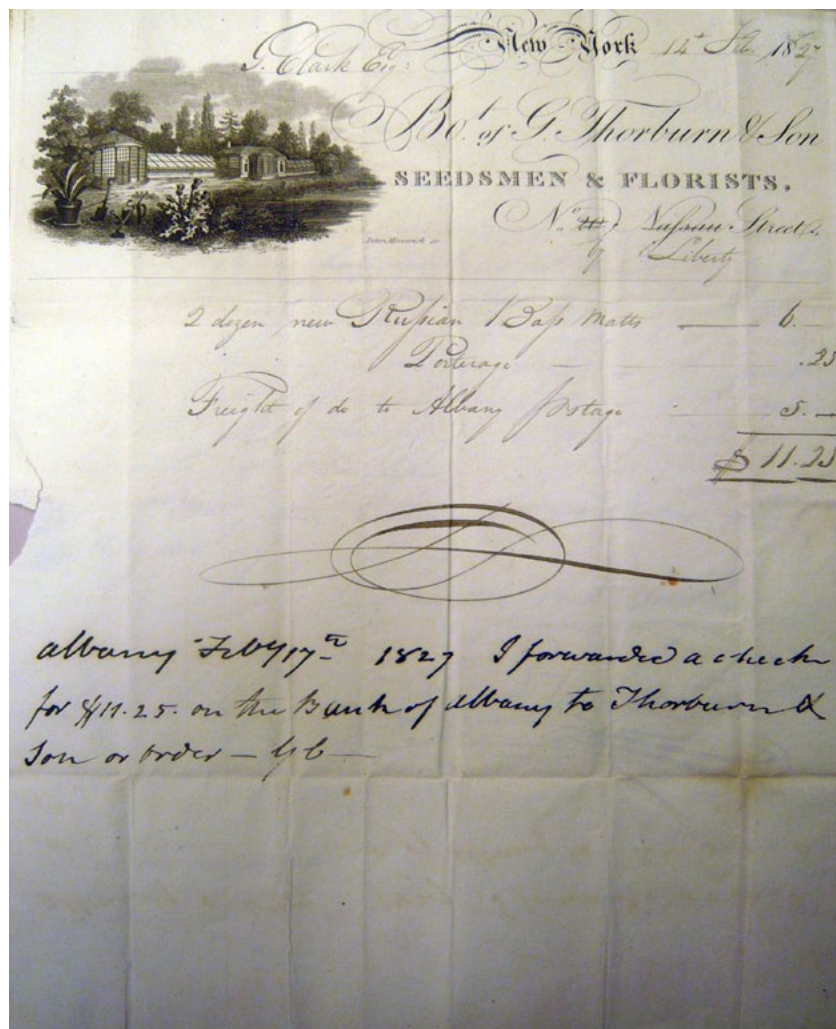 New-York 14th Feb. 1827
G. Clark Esq:
Bo.t of G. Thorburn & Son
SEEDSMEN & FLORISTS,
No. Nassau Street
67 Liberty
2 dozen new Russian Bass Matts — 6. —
Porterage — .25
Freight of do to Albany postage — 5. —
$ 11.25
Albany Feby 17th 1827 I forwarded a check
for $11.25. on the Bank of Albany to Thorburn &
Son or order — GC —